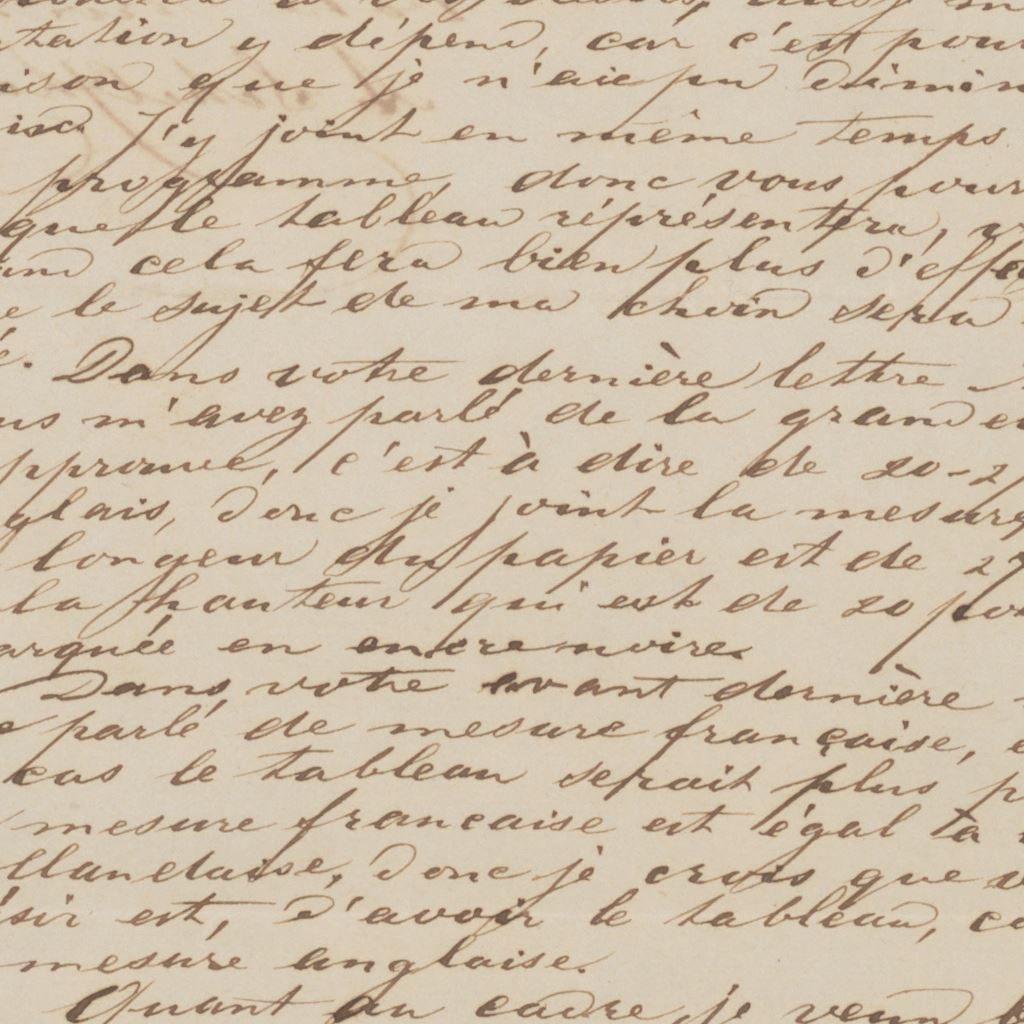 tation y dépend, car c'est pour
ison que je n'aie pu dimin
J'y joint en même temps
programme, donc vous pour
que le tableau réprésentera,
and cela fera bien plus d'effe
e le sujet de ma choix sera
é. Dans votre dernière lettre
us m'avez parlé de la grande
pprouvé, c'est à dire de 20-2
glais, donc je joint la mesure
longeur du papier est de 27
la hauteur qui est de 20 po
arquée en encre noire.
Dans votre avant dernière
e parlé de mesure française, e
cas le tableau serait plus p
mesure francaise est égal ta
ollandaise, donc je crois que v
ésir est, d'avoir le tableau, co
mesure anglaise.
Quant au cadre, je veux b